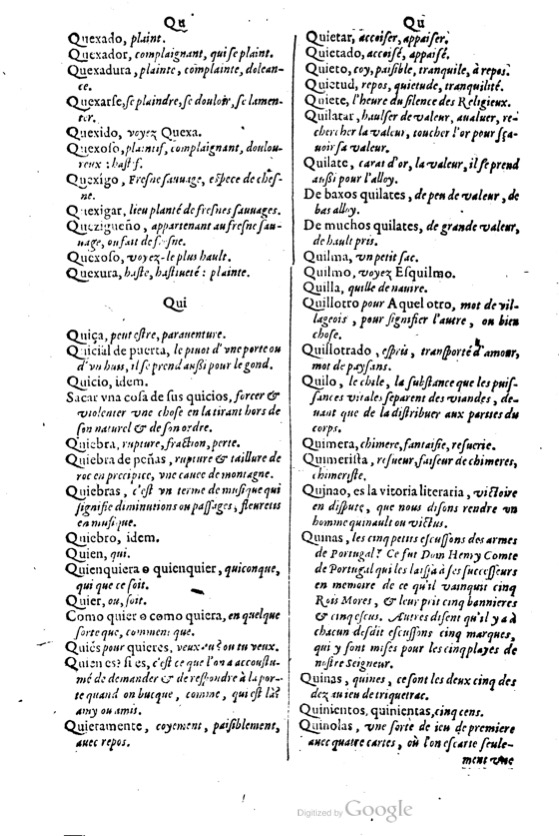 Qu
Quexado, plaint.
Quexador, complaignant, qui se plaint.
Quexadura, plainte, complainte, dolean-
ce.
Quexarse, se plaindre, se douloir, se lamen-
ter.
Quexido, voyez Quexa.
Quexoso, plaintif, complaignant, doulou-
reux : hastif.
Quexigo, Fresne sauuage, espece de ches-
ne.
Quexigar, lieu planté de fresnes sauuages.
Quexigueño, appartenant au fresne sau-
uage, ou fait de fresne.
Quexoso, voyez-le plus hault.
Quexura, haste, hastiueté : plainte.
Qui
Quiça, peut estre, parauenture.
Quicial de puerta, le piuot d'vne porte ou
d'vn huis, il se prend aussi pour le gond.
Quicio, idem.
Sacar vna cosa de sus quicios, forcer &
violenter vne chose en la tirant hors de
son naturel & de son ordre.
Quiebra, rupture, fraction, perte.
Quiebra de peñas, rupture & taillure de
roc en precipice, vne cauee de montagne.
Quiebras, c'est vn terme de musique qui
signifie diminutions ou passages, fleuretis
en musique.
Quiebro, idem.
Quien, qui.
Quienquiera o quienquier, quiconque,
qui que ce soit.
Quier, ou, soit.
Como quier o como quiera, en quelque
sorte que, comment que.
Quiés pour quieres, veux-tu? ou tu veux.
Quien es? si es, c'est ce que l'on a accoustu-
mé de demander & de respondre à la por-
te quand on bucque, comme, qui est là?
amy ou amis.
Quieramente, coyement, paisiblement,
auec repos.
Qu
Quietar, accoiser, appaiser.
Quietado, accoisé, appaisé.
Quieto, coy, paisible, tranquile, à repos.
Quietud, repos, quietude, tranquilité.
Quiete, l'heure du silence des Religieux.
Quilatar, haulser de valeur, aualuer, re-
chercher la valeur, toucher l'or pour sça-
uoir sa valeur.
Quilate, carat d'or, la valeur, il se prend
aussi pour l'alloy.
De baxos quilates, de peu de valeur, de
bas alloy.
De muchos quilates, de grande valeur,
de hault pris.
Quilma, vn petit sac.
Quilmo, voyez Esquilmo.
Quilla, quille de nauire.
Quillotro pour Aquel otro, mot de vil-
lageois, pour signifier l'autre, ou bien
chose.
Quillotrado, espris, transporté d'amour,
mot de paysans.
Quilo, le chile, la substance que les puis-
sances vitales separent des viandes, de-
uant que de la distribuer aux parties du
corps.
Quimera, chimere, fantaisie, resuerie.
Quimerista, resueur, faiseur de chimeres,
chimeriste.
Quinao, es la vitoria literaria, victoire
en dispute, que nous disons rendre vn
homme quinault ou victus.
Quinas, les cinq petits escussons des armes
de Portugal? Ce fut Dom Henry Comte
de Portugal qui les laissa à ses successeurs
en memoire de ce qu'il vainquit cinq
Rois Mores, & leur prit cinq bannieres
& cinq escus. Autres disent qu'il y a à
chacun desdit escussons cinq marques,
qui y sont mises pour les cinq playes de
nostre Seigneur.
Quinas, quines, ce sont les deux cinq des
dez au ieu de triquetrac.
Quinientos, quinientas, cinq cens.
Quinolas, vne sorte de ieu de premiere
auec quatre cartes, où l'on escarte seule-
ment vne
Digitized by Google